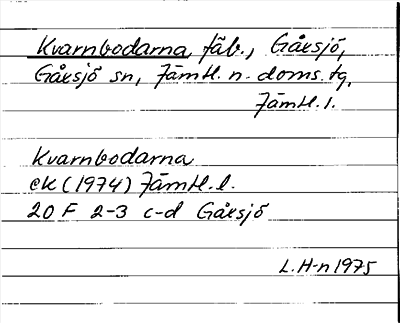 Kvarnbodarna, fäb., Gåxsjö,
Gåxsjö sn, Jämtl. n. doms. tg,
Jämtl. l.
Kvarnbodarna
ek (1974) Jämtl. l.
20 F 2-3 c-d Gåxsjö
L. H-n 1975